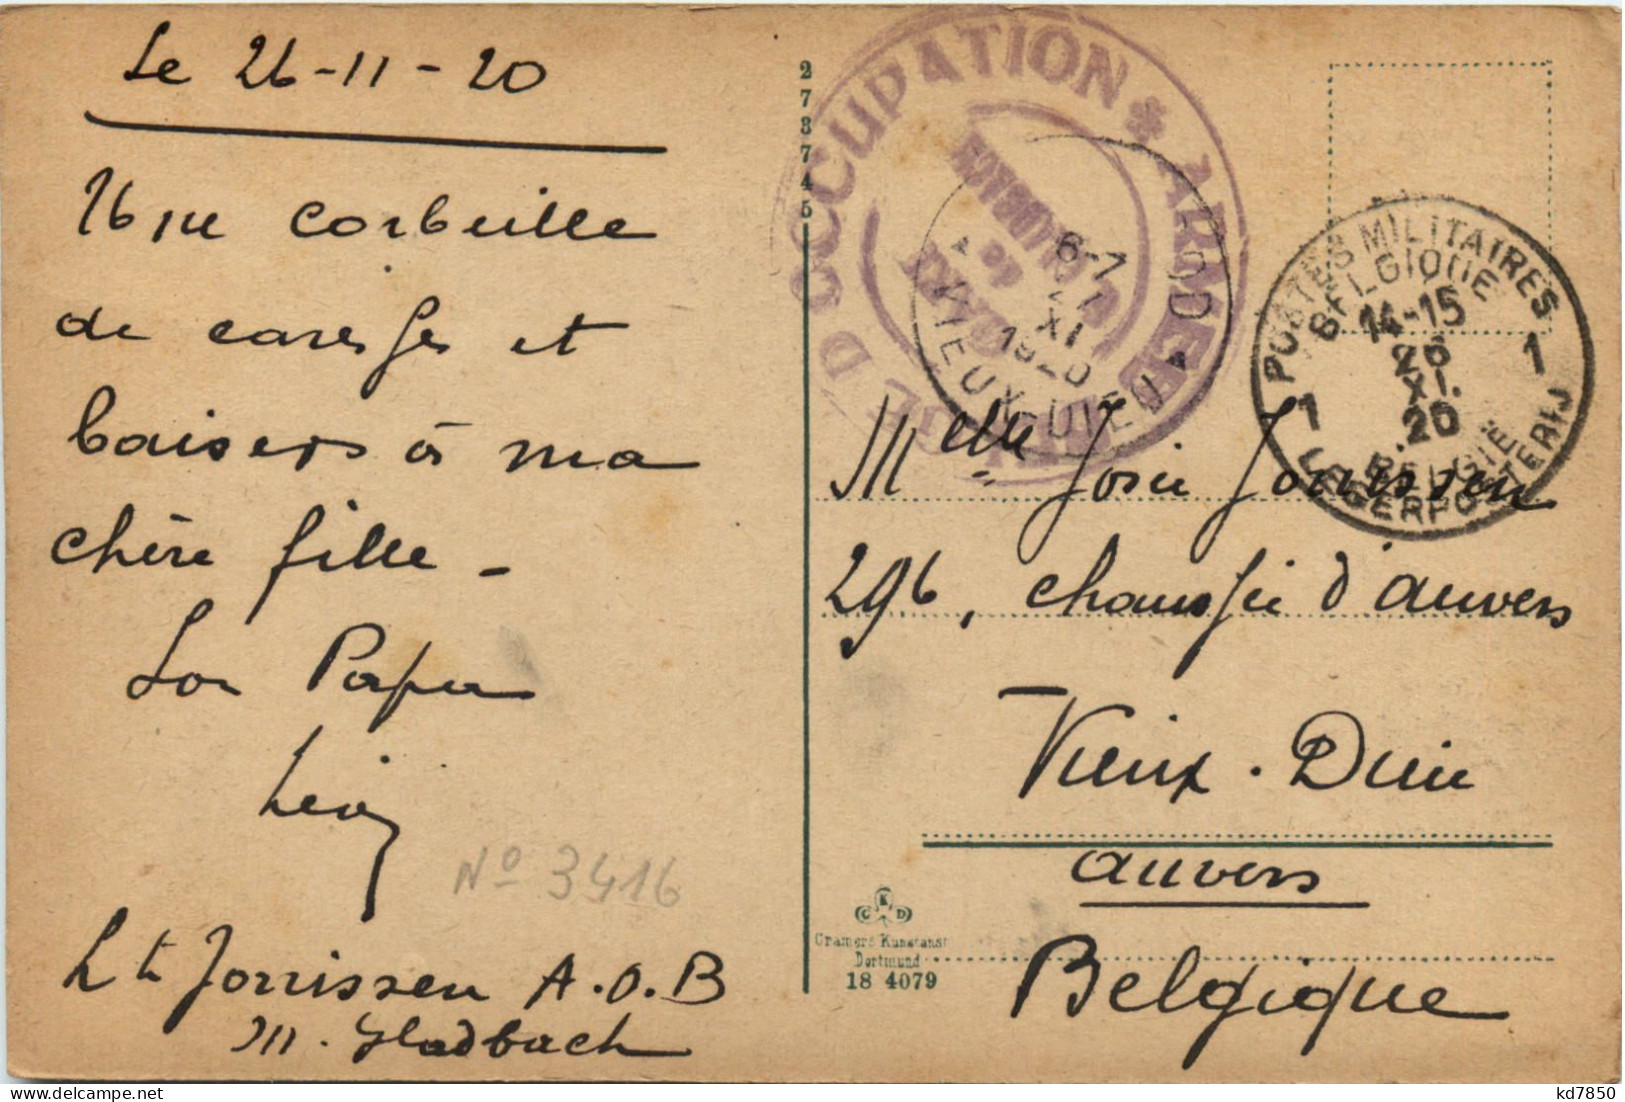 Le 26-11-20
16me corbeille
de caresses et
baisers à ma
chère fille -
Son Papa
Léon
N° 3416
Lt Jorissen A.O.B
M. Gladbach
278745
OCCUPATION * ARMÉE
D
6-7
XI
1920
VIEUX-DIEU
POSTES MILITAIRES
BELGIQUE
14-15
26
XI.
20
1 1
BELGIE
LEGERPOSTERIJ
Melle Josée Jorissen
296, chaussée d'anvers
Vieux-Dieu
anvers
Belgique
C K D
Cramers Kunstanst
Dortmund
18 4079
kd7850